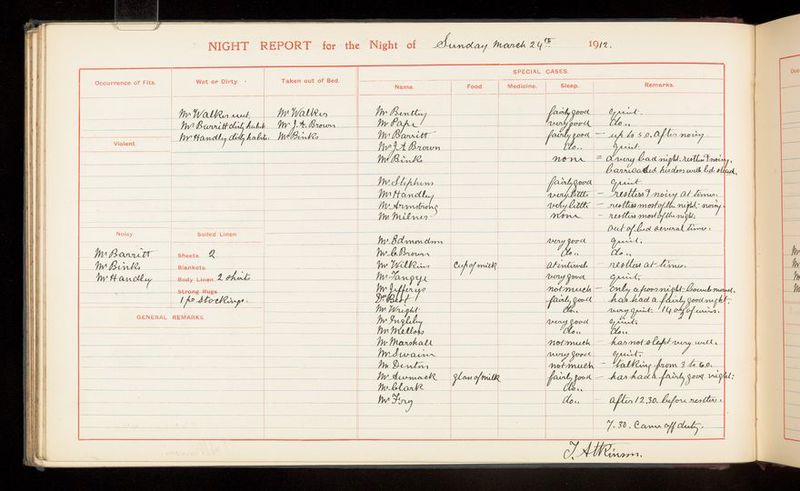 NIGHT REPORT for the Night of Sunday March 24th 1912.
Occurrence of Fits. Wet or Dirty. Taken out of Bed. SPECIAL CASES.
Name. Food Medicine. Sleep. Remarks.
Mr Walker wet Mr Walker Mr Bentley fairly good quiet.
Mr Barritt dirty habit Mr J. A. Brown Mr Cape very good do..
Mr Handley dirty habits. Mr Binks Mr Barritt fairly good — up to 5 o. after noisy
Violent. Mr J. A Brown do.. quiet.
Mr Binks none = a very bad night. restless & noisy.
barricaded his door with bedstead.
Mr Stephens fairly good quiet
Mr Handley very little — restless & noisy at times.
Mr Armstrong very little — restless most of the night - noisy.
Mr Milner none — restless most of the night.
out of bed several times.
Noisy Soiled Linen Mr Edmondson very good quiet.
Mr Barritt Sheets. 2 Mr C. Brown do.. do..
Mr Binks Blankets. Mr Wilkins Cup of milk at intervals — restless at times.
Mr Handley Body Linen. 2 shirts Mr Tangye very good quiet.
Strong Rugs Mr Jefferys not much — only a poor night.
1 pr stockings. Dr Best fairly good — has had a fairly good night.
Mr Wright do.. very quiet. 14 ozs of urine.
GENERAL REMARKS. Mr Ingleby very good quiet.
Mr Mellors do.. do..
Mr Marshall not much — has not slept very well.
Mr Swain very good quiet.
Mr Denton not much — talking from 3 to 6 o.
Mr glass of milk fairly good — has had a fairly good night.
Mr Clark do..
Mr Fry do.. — after 12.30. before restless.
7.30. Came off duty.
J. Atkinson.